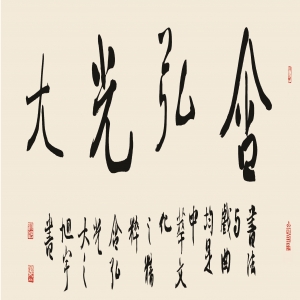 含弘光大
書法
与戲曲
均是
中華文
化之精
粹
含弘
光
大之
旭宇
書